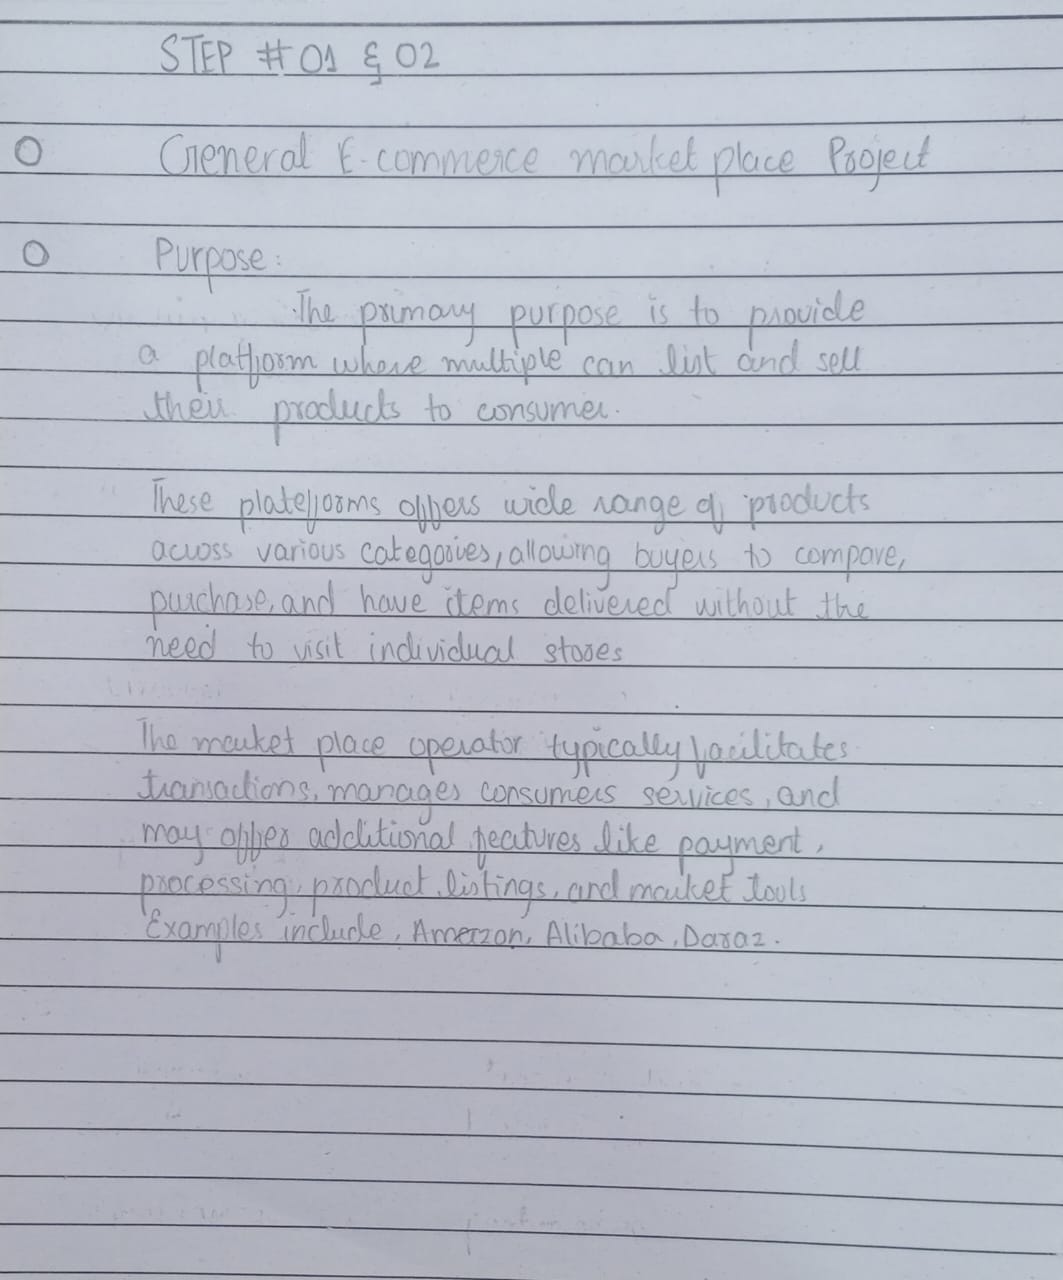 STEP # 01 & 02
General E-commerce market place Project
Purpose:
The primary purpose is to provide
a platform where multiple can list and sell
their products to consumer.
These plateforms offers wide range of products
across various categories, allowing buyers to compare,
purchase, and have items delivered without the
need to visit individual stores
The market place operator typically facilitates
transactions, manages consumers services, and
may offer additional features like payment,
processing, product listings, and market tools
Examples include, Amazon, Alibaba, Daraz.